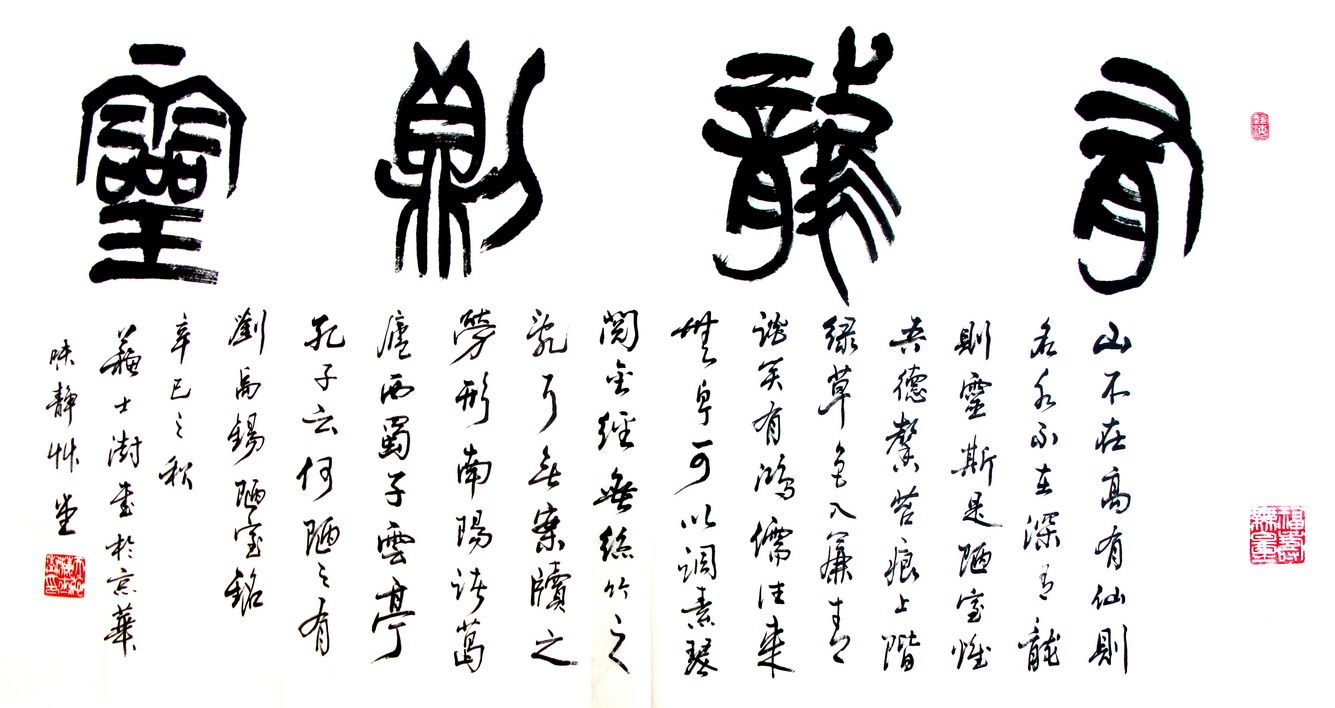 有龍則靈
山不在高有仙則
名水不在深有龍
則靈斯是陋室惟
吾德馨苔痕上階
緑草色入簾青
談笑有鴻儒往來
無白丁可以調素琴
閱金經無絲竹之
亂耳無案牘之
勞形南陽諸葛
廬西蜀子雲亭
孔子云何陋之有
劉禹錫陋室銘
辛巳之秋
蘇士澍書於京華
味靜艸堂
福壽無量